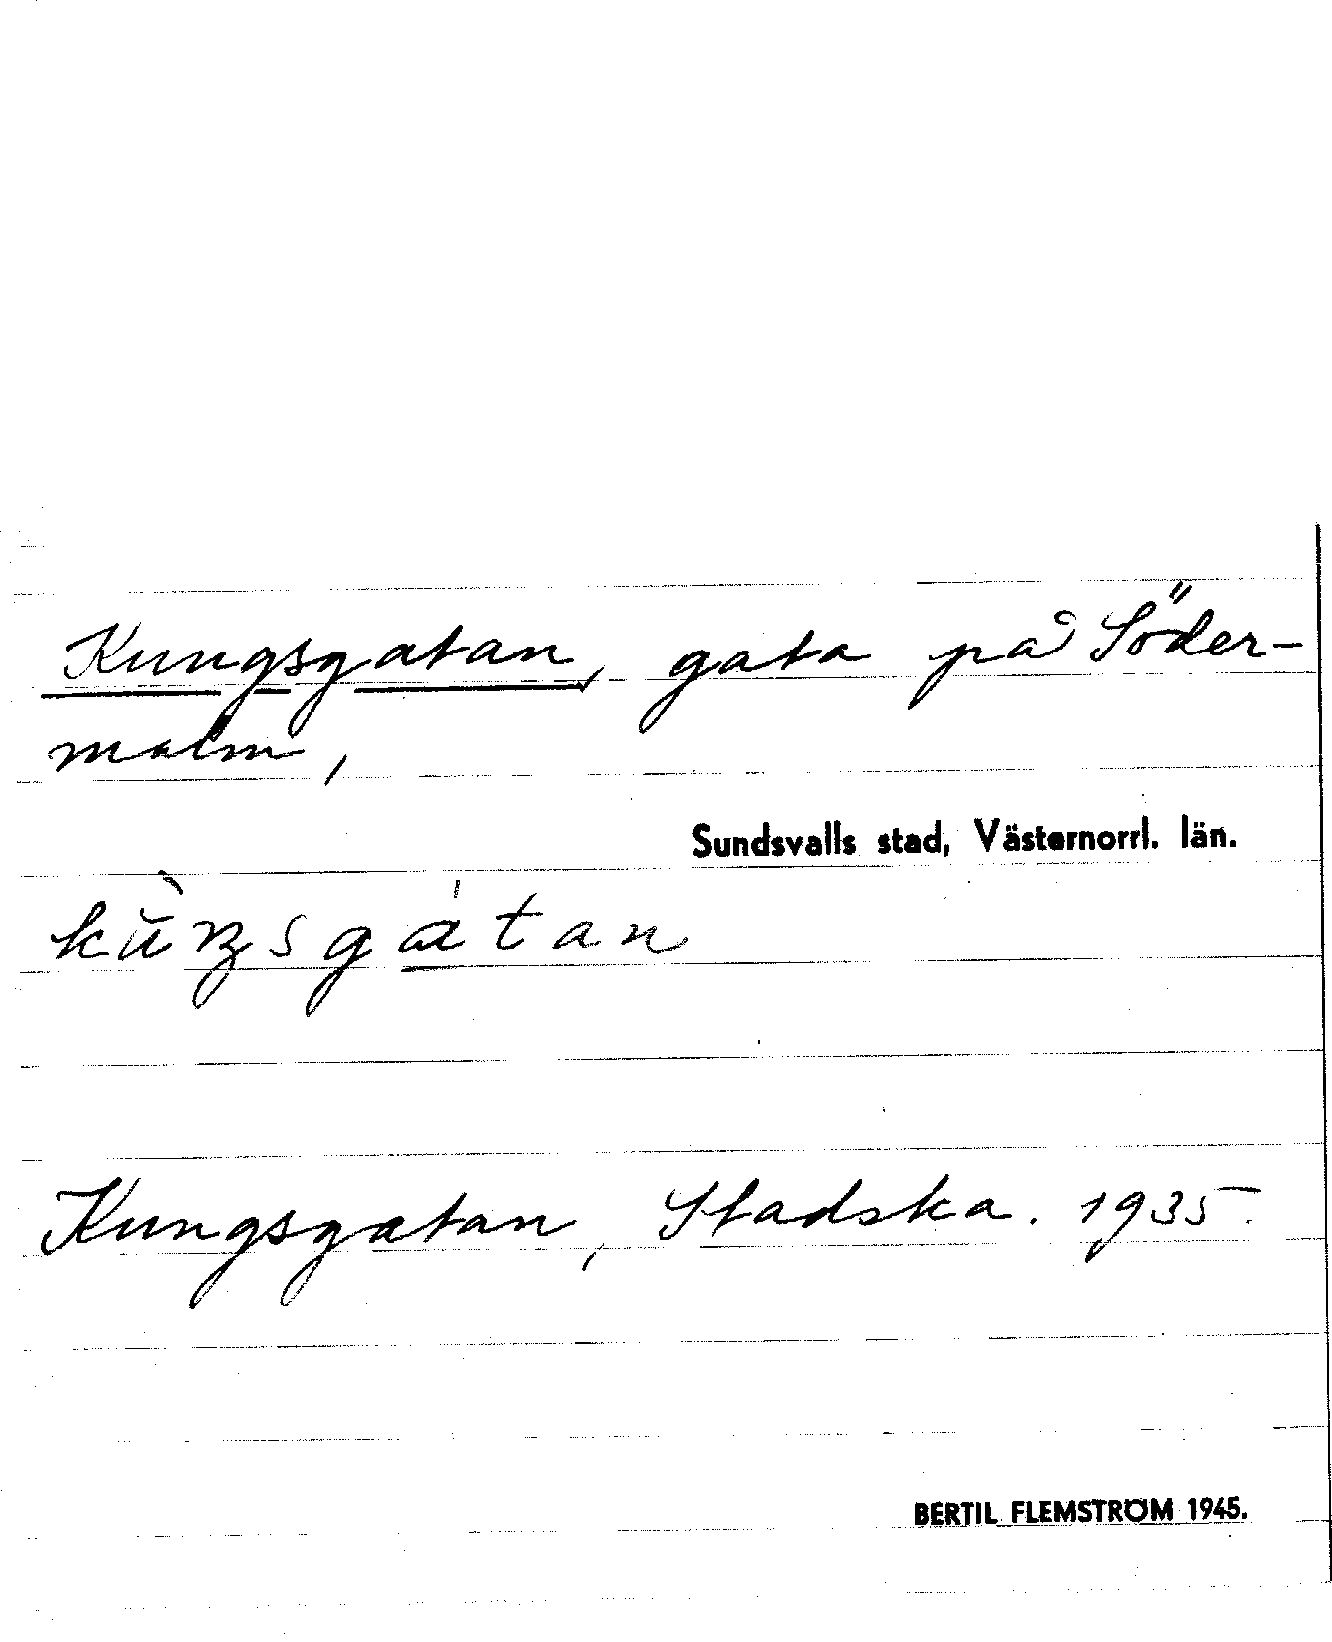 Kungsgatan, gata på Söder-
malm,
Sundsvalls stad, Västernorrl. län.
kùŋsgátan
Kungsgatan, Stadska. 1935.
BERTIL FLEMSTRÖM 1945.